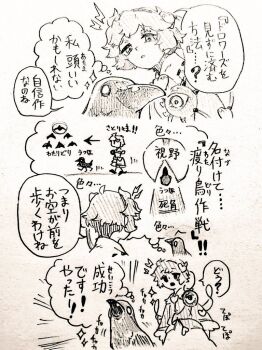 『ドロワーズを
見ずに済む
方法』?
私 頭いい
かも
しれない
自信作
なのね
名付けて…
『渡り鳥作戦』!!
色々…
さとり様!!
うつほ
わたりどり
視野
うつほ
死角
色々…
色々…
つまり
お空が前を
歩くわけね
どう?
成功
です!
やった!!